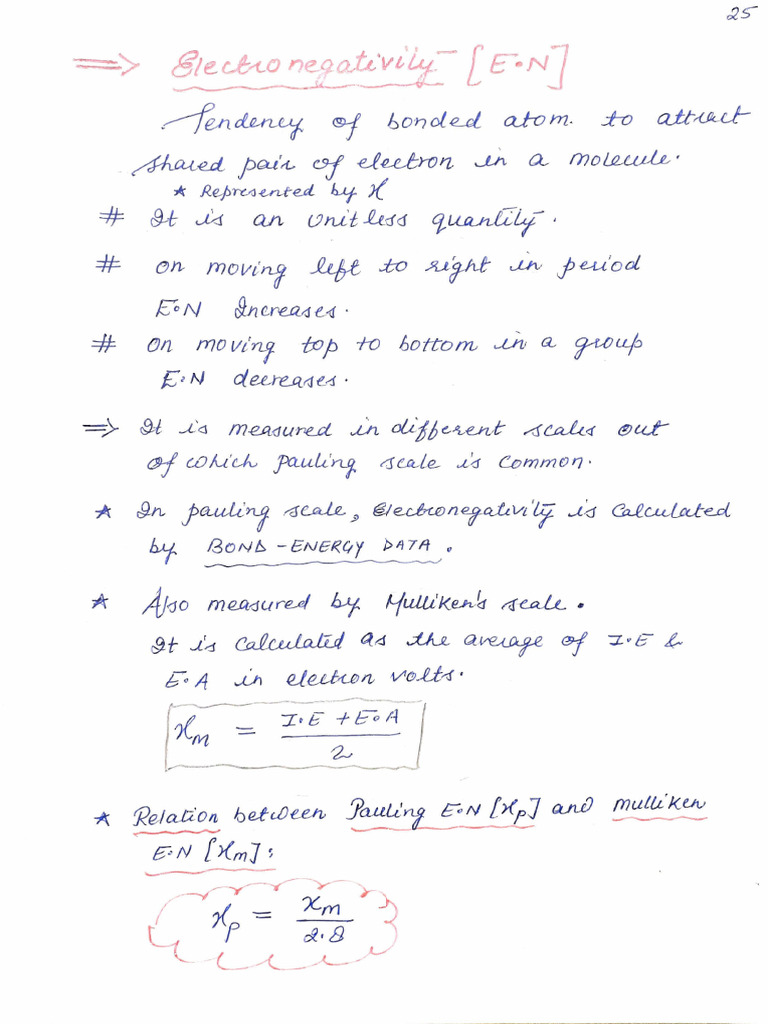 25
⇒ Electronegativity [E.N]
Tendency of bonded atom. to attract
shared pair of electron in a molecule.
* Represented by χ
# It is an unitless quantity.
# on moving left to right in period
E.N Increases.
# On moving top to bottom in a group
E.N decreases.
⇒ It is measured in different scales out
of which pauling scale is common.
* In pauling scale, Electronegativity is calculated
by BOND-ENERGY DATA.
* Also measured by Mulliken's scale.
It is calculated as the average of I.E &
E.A in electron volts.
χm = I.E + E.A / 2
* Relation between Pauling E.N [χp] and mulliken
E.N [χm]:
χp = χm / 2.8